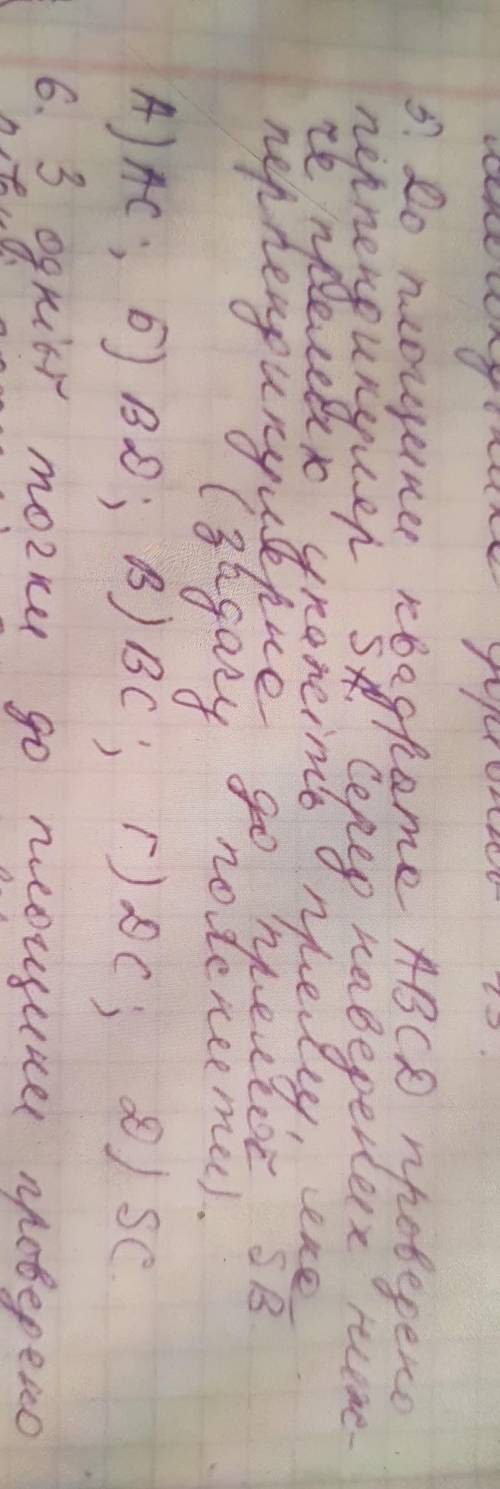 5. До площини квадрата ABCD проведено
перпендикуляр SA. Серед наведених ниж-
че прямих укажіть пряму, яка
перпендикулярна до прямої SB.
(задачу пояснити).
А) AC; Б) BD; В) BC; Г) DC; Д) SC.
6. З однієї точки до площини проведено